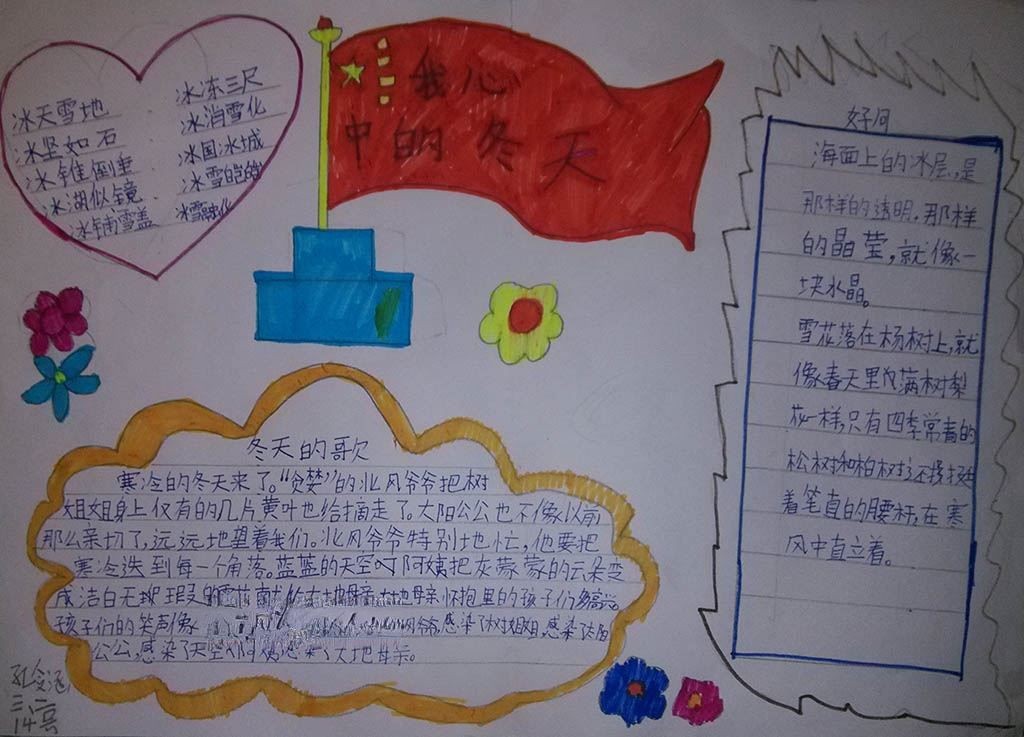 冰天雪地
冰坚如石
冰锥倒垂
冰湖似镜
冰铺雪盖
冰冻三尺
冰消雪化
冰国冰城
冰雪皑皑
冰雪融化
我心
中的冬天
好句
海面上的冰层,是
那样的透明,那样
的晶莹,就像一
块水晶。
雪花落在杨树上,就
像春天里的满树梨
花一样,只有四季常青的
松树和柏树还挺拔
着笔直的腰杆,在寒
风中直立着。
冬天的歌
寒冷的冬天来了。“贪婪”的北风爷爷把树
姐姐身上仅有的几片黄叶也给摘走了。太阳公公也不像以前
那么亲切了,远远地望着我们。北风爷爷特别地忙,他要把
寒冷送到每一个角落。蓝蓝的天空阿姨把灰蒙蒙的云朵变
成洁白无瑕的大地母亲,大地母亲怀抱里的孩子们
孩子们的笑声像 感染了树姐姐,感染了太阳
公公,感染了天空阿姨,感染了大地母亲。
三、二
14号